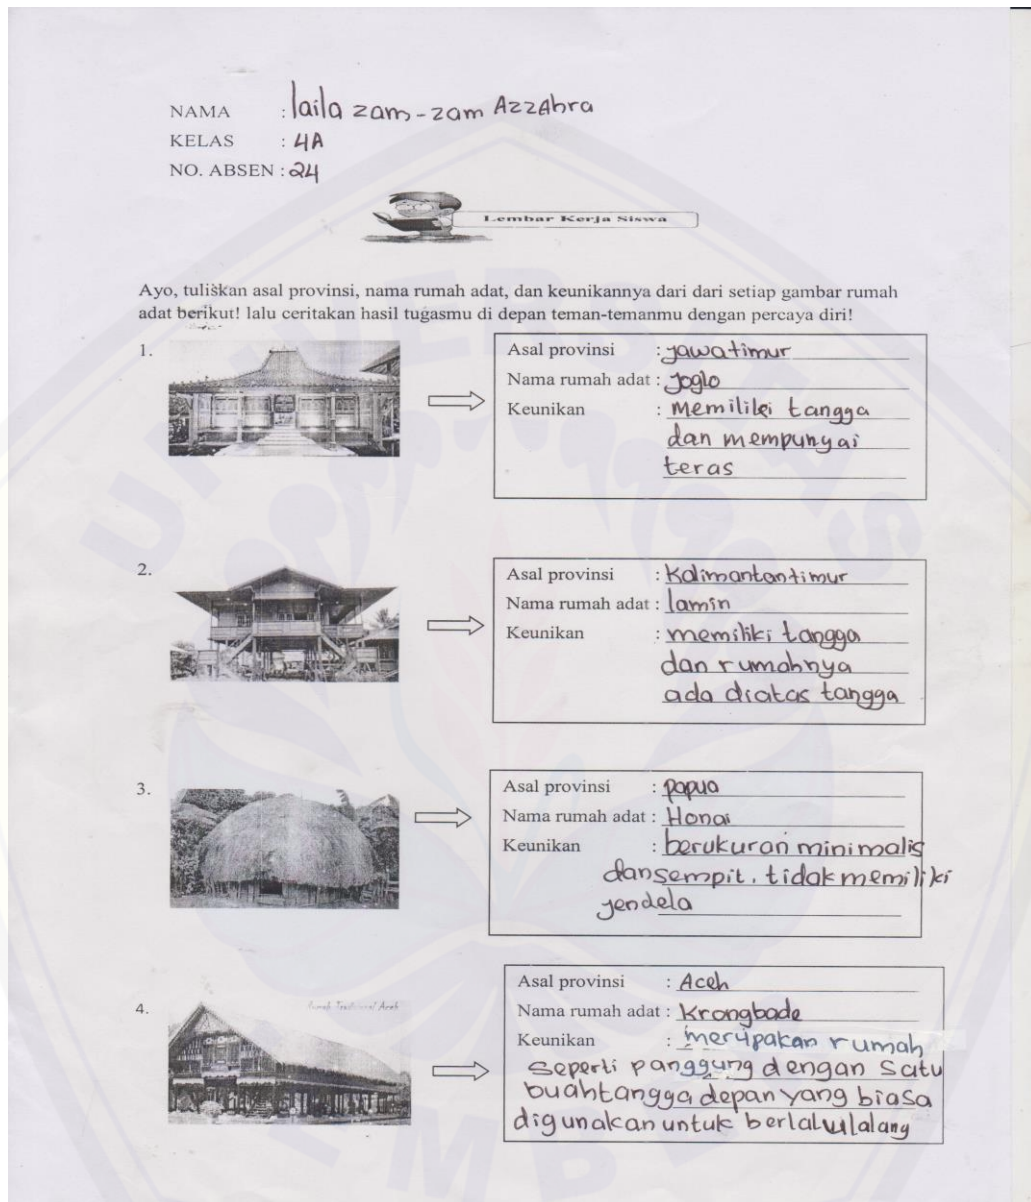 NAMA : laila zam-zam Azzahra
KELAS : 4A
NO. ABSEN : 24
Lembar Kerja Siswa
Ayo, tuliskan asal provinsi, nama rumah adat, dan keunikannya dari dari setiap gambar rumah
adat berikut! lalu ceritakan hasil tugasmu di depan teman-temanmu dengan percaya diri!
1.
Asal provinsi : jawa timur
Nama rumah adat : Joglo
Keunikan : Memiliki tangga
dan mempunyai
teras
2.
Asal provinsi : Kalimantan timur
Nama rumah adat : lamin
Keunikan : memiliki tangga
dan rumahnya
ada diatas tangga
3.
Asal provinsi : papua
Nama rumah adat : Honai
Keunikan : berukuran minimalis
dan sempit. tidak memiliki
jendela
4.
Rumah Tradisional Aceh
Asal provinsi : Aceh
Nama rumah adat : Krongbade
Keunikan : merupakan rumah
seperti panggung dengan satu
buah tangga depan yang biasa
digunakan untuk berlalulalang
UNIVERSITAS
JEMBER